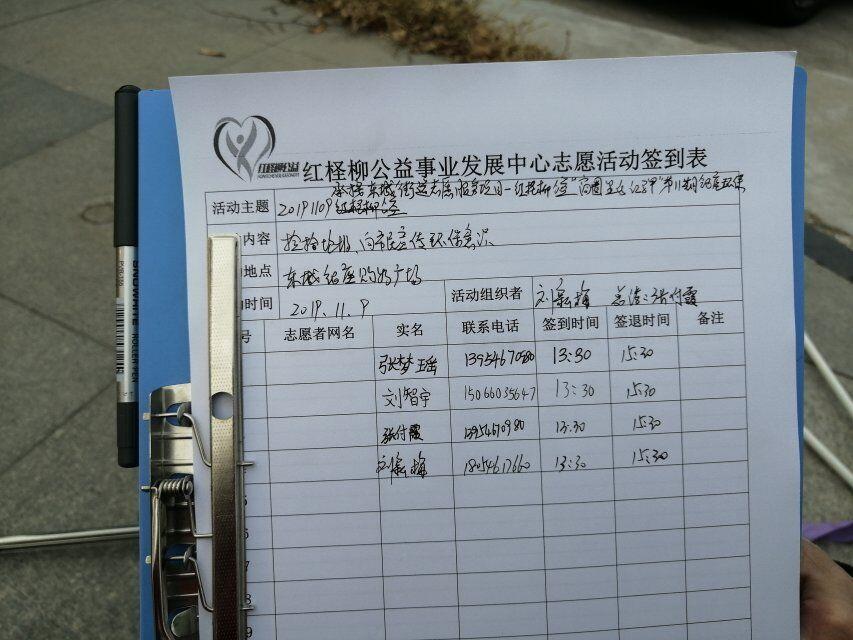 红柽柳公益事业发展中心志愿活动签到表
活动主题 20191109红柽柳公益
内容 捡拾垃圾、向市民宣传环保意识
地点 东城银座购物广场
时间 2019.11.9 活动组织者 总结:张付霞
号 志愿者网名 实名 联系电话 签到时间 签退时间 备注
张梦瑶 13954670980 13:30 15:30
刘智宇 15066035647 13:30 15:30
张付霞 13954670980 13:30 15:30
18054617660 13:30 15:30
6
7
8
9
SNOWHITE ROLLER PEN